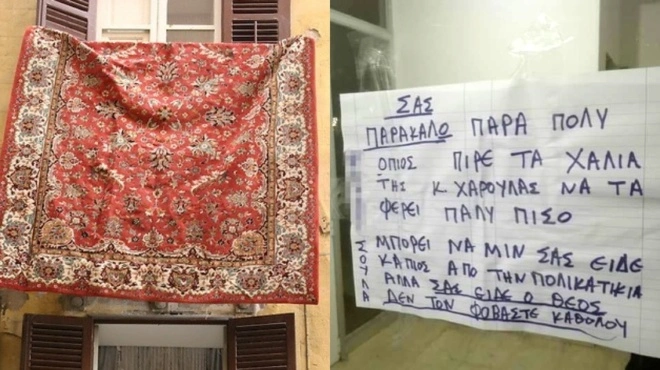 ΣΑΣ
ΠΑΡΑΚΑΛΟ ΠΑΡΑ ΠΟΛΥ
ΟΠΙΟΣ ΠΙΡΕ ΤΑ ΧΑΛΙΑ
ΤΗΣ Κ ΧΑΡΟΥΛΑΣ ΝΑ ΤΑ
ΦΕΡΕΙ ΠΑΛΥ ΠΙΣΟ
ΜΠΟΡΕΙ ΝΑ ΜΙΝ ΣΑΣ ΕΙΔΕ
ΚΑΠΙΟΣ ΑΠΟ ΤΗΝ ΠΟΛΙΚΑΤΙΚΙΑ
ΑΛΛΑ ΣΑΣ ΕΙΔΕ Ο ΘΕΟΣ
ΔΕΝ ΤΟΝ ΦΟΒΑΣΤΕ ΚΑΘΟΛΟΥ
ΣΟΥΛΑ